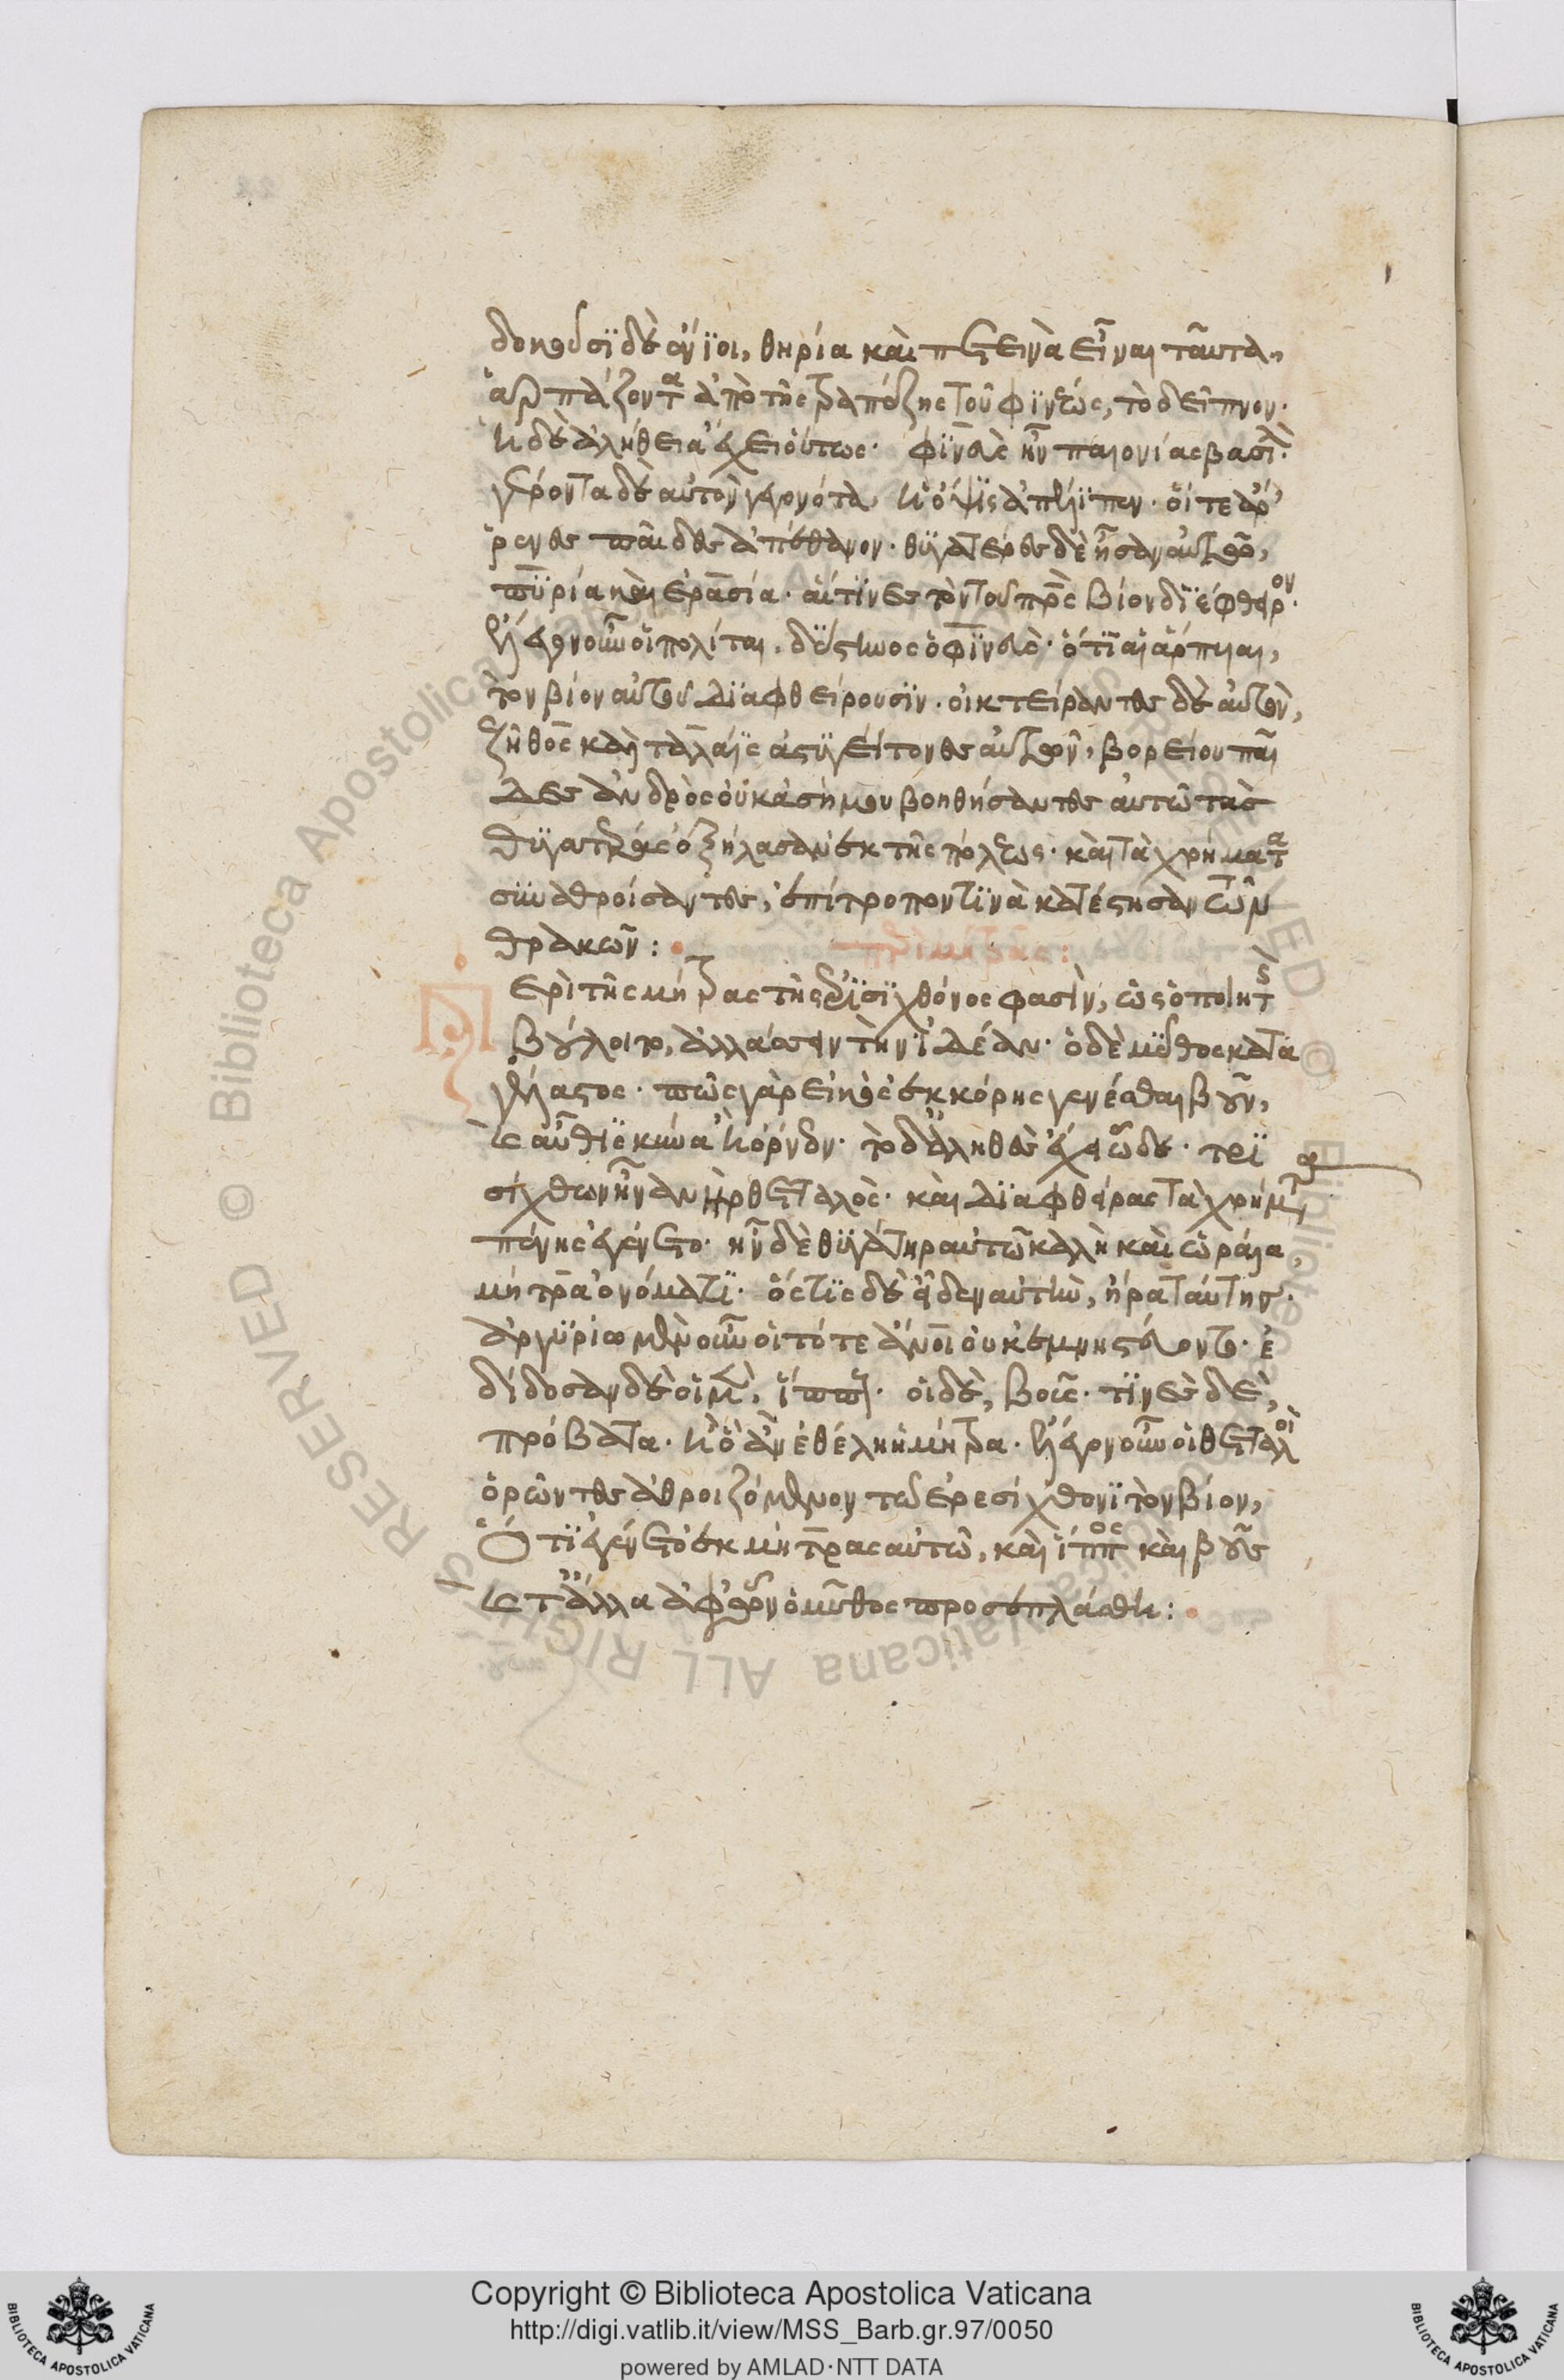 δοκοῦσι δὲ ἔνϊοι, θηρία καὶ πτεινὰ εἶναι ταῦτα,
ἁρπάζοντα ἀπὸ τῆς τραπέζης τοῦ φϊνέως, τὸ δεῖπνον.
ἡ δὲ ἀλήθεια ἔχει οὕτως. φϊνεὺς ἦν παιονίας βασιλ.
γέροντα δὲ αὐτὸν γεγονότα ἡ ὄψϊς ἀπέλϊπεν. οἵ τε ἄρ
ρενες παῖδες ἀπέθανον. θϋγατέρες δὲ ἦσαν αὐτῶ,
πϋρία καὶ ἐρασία. αἵτϊνες τὸν τοῦ πρς βίον δϊέφθειρον.
ἔλεγον οὖν οἱ πολίται. δύστηνος ὁ φϊνεὺς. ὅτϊ αἱ ἅρπυιαι,
τὸν βίον αὐτοῦ διαφθείρουσϊν. οἰκτείραντες δὲ αὐτὸν,
ζῆθος καὶ κάλαϊς ἀστϋγείτονες αὐτοῦ, βορείου παῖ
δες ἀνδρὸς οὐκ ἀσήμου βοηθήσαντες αὐτῶ τὰς
θϋγατέρας ἐξήλασαν ἐκ τῆς πόλεως. καὶ τὰ χρήματα
συναθροίσαντες, ἐπίτροπον τϊνὰ κατέστησαν τῶν
θρακῶν:
Περὶ τῆς μήτρας τῆς ἐρϊσϊχθόνος φασὶν, ὡς ὁπότε
βούλοιτο, ἀλλάσσειν τὴν ἰδέαν. ὁ δὲ μῦθος κατα
γέλαστος. πῶς γὰρ εἰκὸς ἐκ κόρης γενέσθαι βοῦν,
καὶ αὖθϊς κύνα ἢ ὄρνϊν. τὸ δ' ἀληθὲς ἔχει ὧδε. ἐρϊ
σίχθων ἦν ἀνὴρ θετταλὸς. καὶ διαφθείρας τὰ χρήματα
πένης ἐγένετο. ἦν δὲ θϋγάτηρ αὐτῶ καλὴ καὶ ὡραία,
μήτρα ὀνόματϊ. ὅστϊς δὲ εἶδεν αὐτὴν, ἤρατ' αὐτῆς.
ἀργϋρίω μὲν οὖν οἱ τότε ἄνοι οὐκ ἐμνηστεύοντο. ἐ
δίδοσαν δὲ οἱ μὲν, ἵππους. οἱ δὲ, βοῦς. τϊνὲς δὲ,
πρόβατα. ἢ ὃ ἂν ἐθέλη ἡ μήτρα. ἔλεγον οὖν οἱ θετταλοὶ
ὁρῶντες ἀθροιζόμενον τῶ ἐρεσίχθονϊ τὸν βίον,
ὅτϊ ἐγένετο ἐκ μήτρας αὐτῶ, καὶ ἵππος καὶ βοῦς
καὶ τἄλλα ἀφ' ὧν ὁ μῦθος προσεπλάσθη:
Copyright © Biblioteca Apostolica Vaticana
http://digi.vatlib.it/view/MSS_Barb.gr.97/0050
powered by AMLAD·NTT DATA